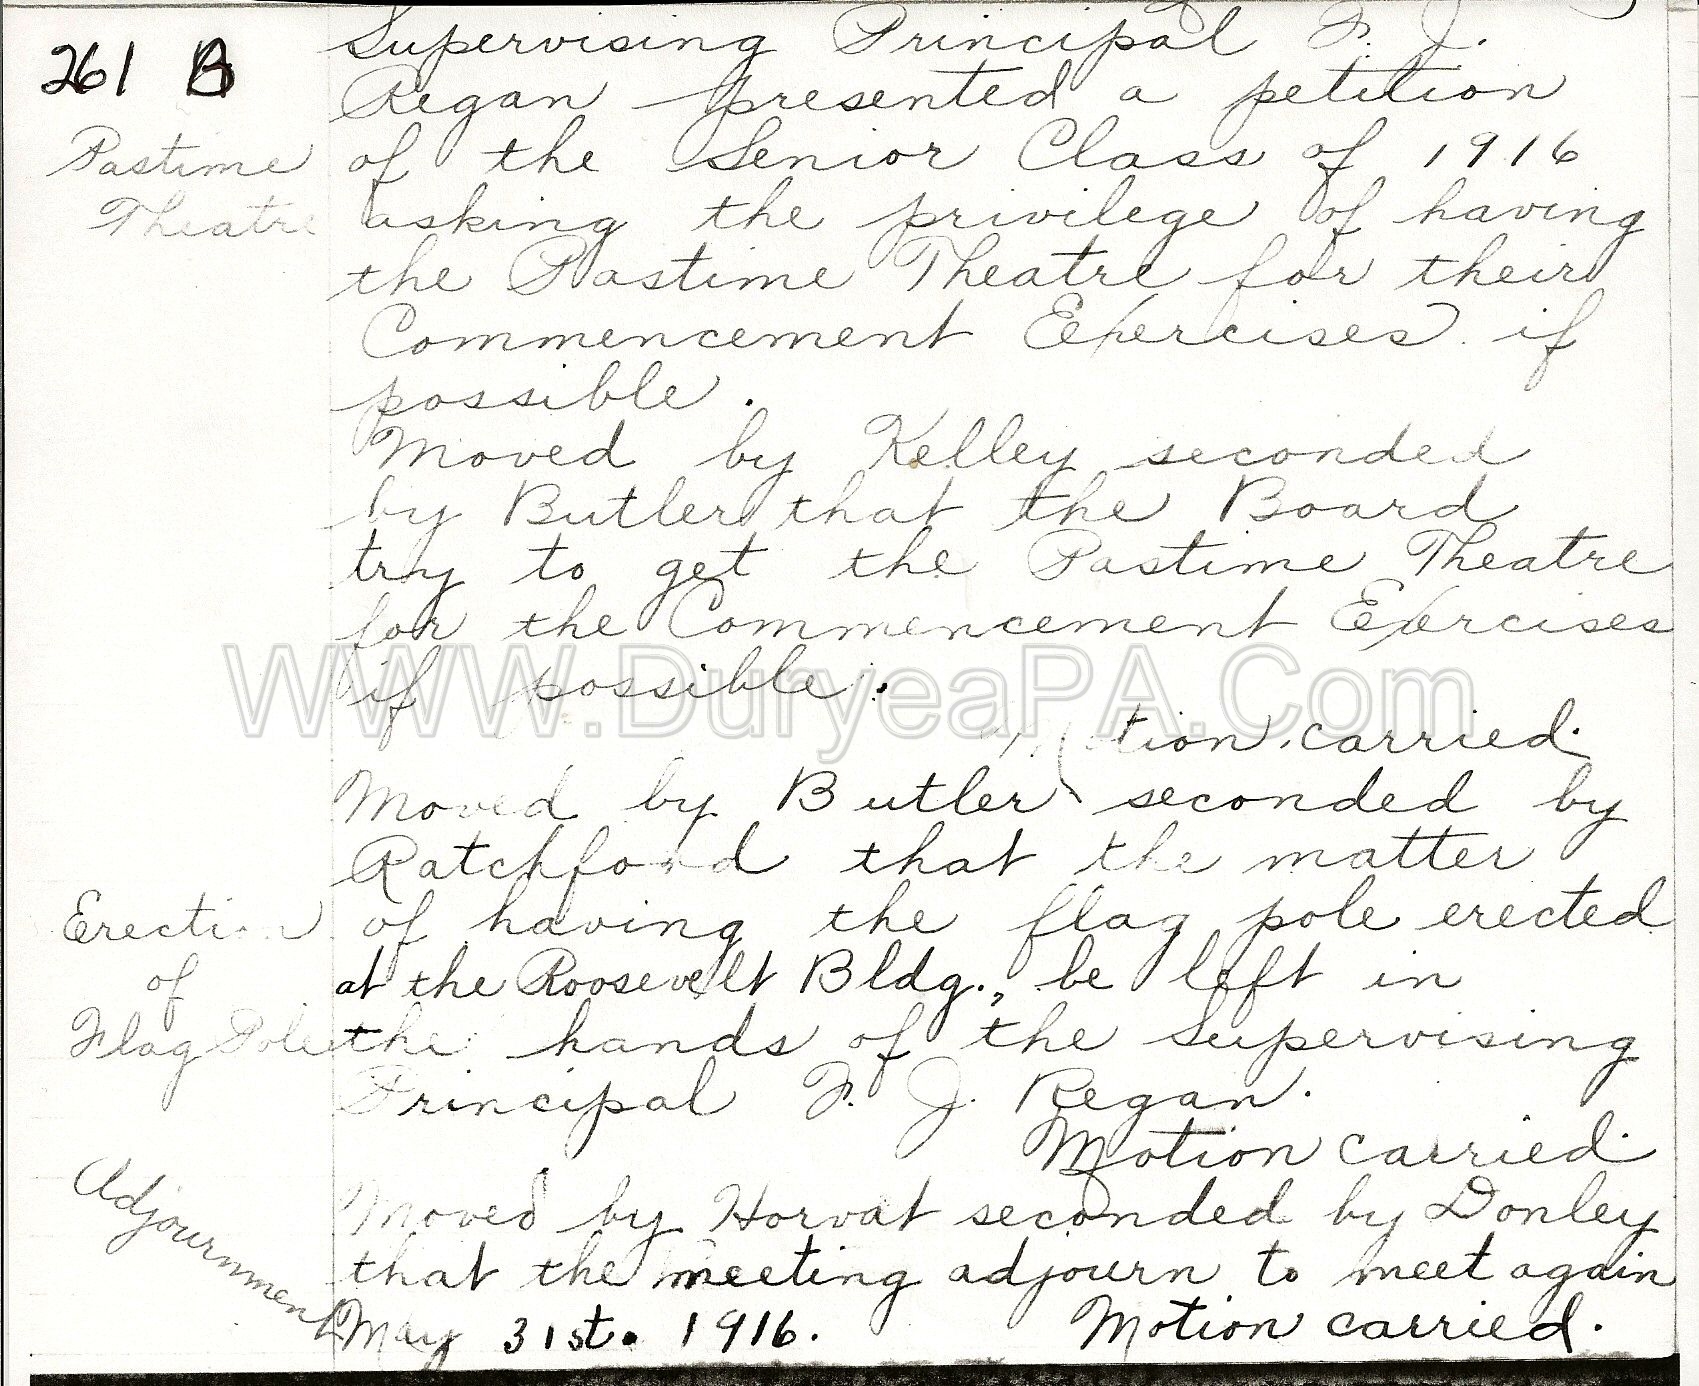 261 B
Supervising Principal F. J.
Regan presented a petition
Pastime
of the Senior Class of 1916
Theatre
asking the privilege of having
the Pastime Theatre for their
Commencement Exercises if
possible.
Moved by Kelley seconded
by Butler that the Board
try to get the Pastime Theatre
for the Commencement Exercises
if possible.
WWW.DuryeaPA.Com
Motion carried.
Moved by Butler seconded by
Ratchford that the matter
Erection
of having the flag pole erected
of
at the Roosevelt Bldg., be left in
Flag Pole
the hands of the Supervising
Principal F. J. Regan.
Motion carried.
Adjournment
Moved by Horvat seconded by Donley
that the meeting adjourn to meet again
May 31st. 1916. Motion carried.